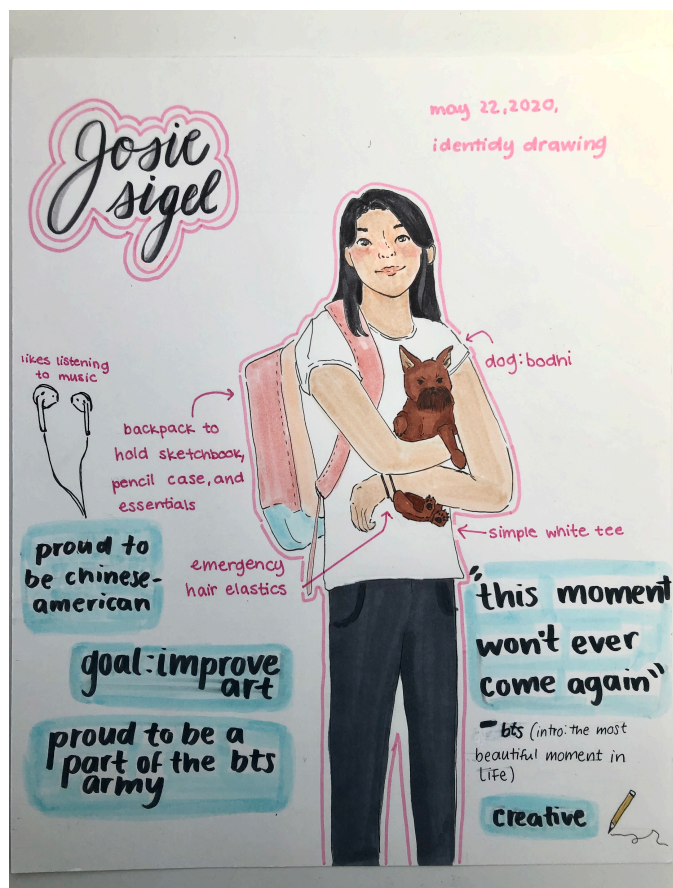 Josie
sigel
may 22, 2020,
identidy drawing
likes listening
to music
dog: bodhi
backpack to
hold sketchbook,
pencil case, and
essentials
simple white tee
emergency
hair elastics
proud to
be chinese-
american
goal: improve
art
proud to be a
part of the bts
army
"this moment
won't ever
come again"
- bts (intro: the most
beautiful moment in
life)
creative